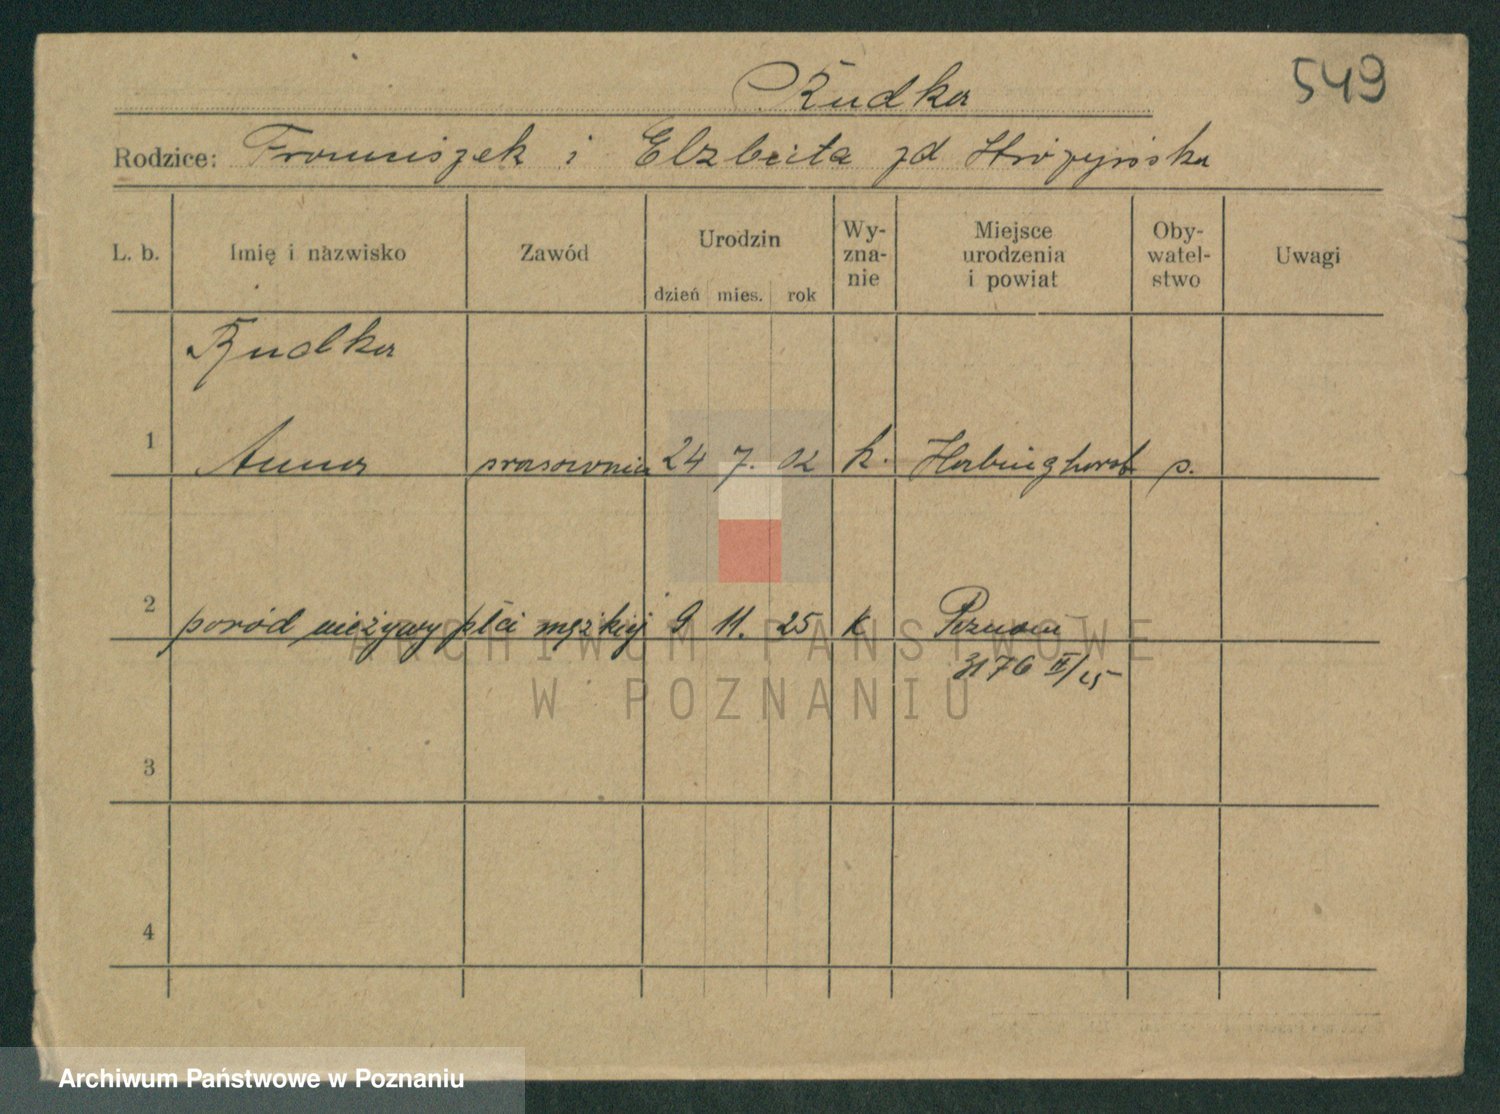 549
Rudka
Rodzice: Franciszek i Elzbieta zd
L. b. Imię i nazwisko Zawód Urodzin dzień mies. rok Wy-zna-nie Miejsce urodzenia i powiat Oby-watel-stwo Uwagi
Rudka
1 Anna prasownica 24 7. 02 k. p.
2 poród nieżywy płci męzkiej 9 11. 25 k Poznań
3176 II/25
3
4
ARCHIWUM PAŃSTWOWE
W POZNANIU
Archiwum Państwowe w Poznaniu